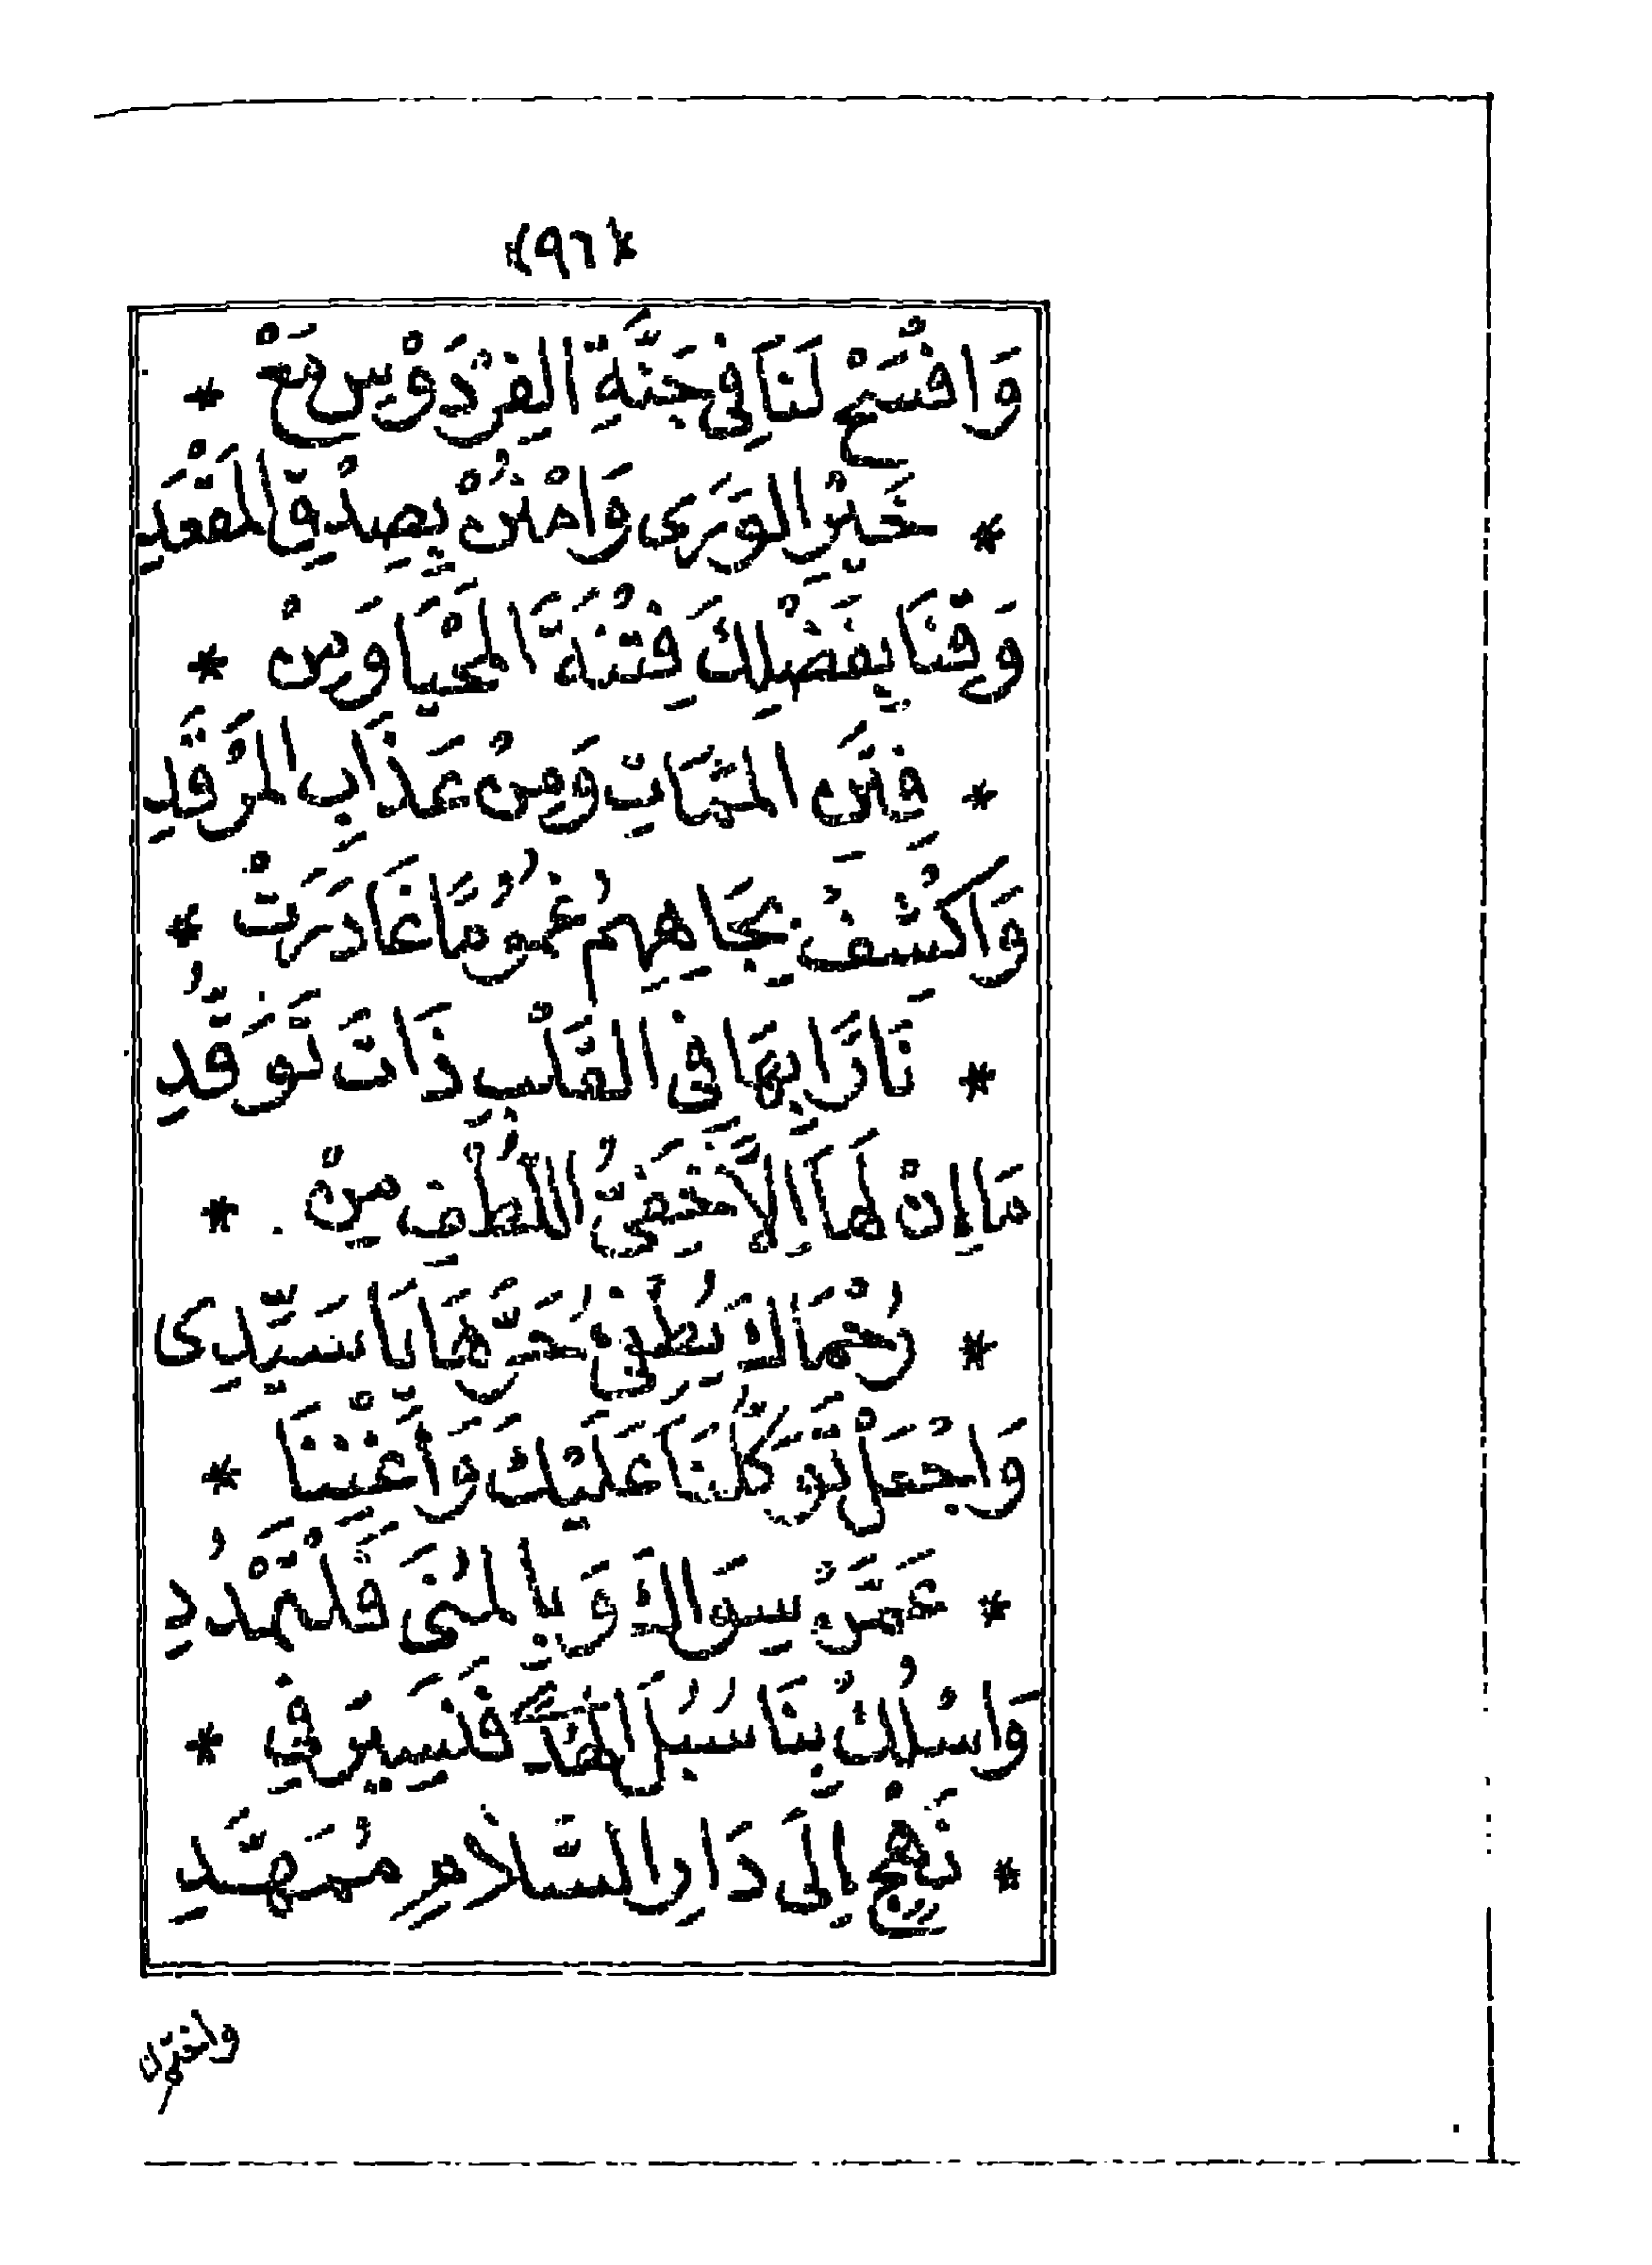 (٩٦)
وَافْسَحْ لَنَا فِي جَنَّةِ الفِرْدَوْسِ مَعْ *
* خَيْرِ الوَرَى وَامْنُنْ بِصِدْقِ المَقْعَدِ
وَقِنَا بِفَضْلِكَ فِتْنَةَ المَحْيَا وَمِنْ *
* فِتَنِ المَمَاتِ وَمِنْ عَذَابِ المَرْقَدِ
وَاكْشِفْ بِجَاهِهِمُ غُمُومًا غَادَرَتْ *
* نَارًا بِهَا فِي القَلْبِ ذَاتَ تَوَقُّدِ
مَا إِنْ لَهَا إِلَّا خَفِيُّ اللُّطْفِ مِنْ *
* رُحْمَاكَ يُطْفِئُ حَرَّهَا يَا سَيِّدِى
وَاجْعَلْ تَوَكُّلَنَا عَلَيْكَ وَأَغْنِنَا *
* عَمَّنْ سِوَاكَ وَبِالمُنَى فَلْتُمْدِدِ
وَاسْلُكْ بِنَا سُبُلَ الهُدَى فَنَسِيرَ فِي *
* نَهْجٍ إِلَى دَارِ السَّلَامِ مُمَهَّدِ